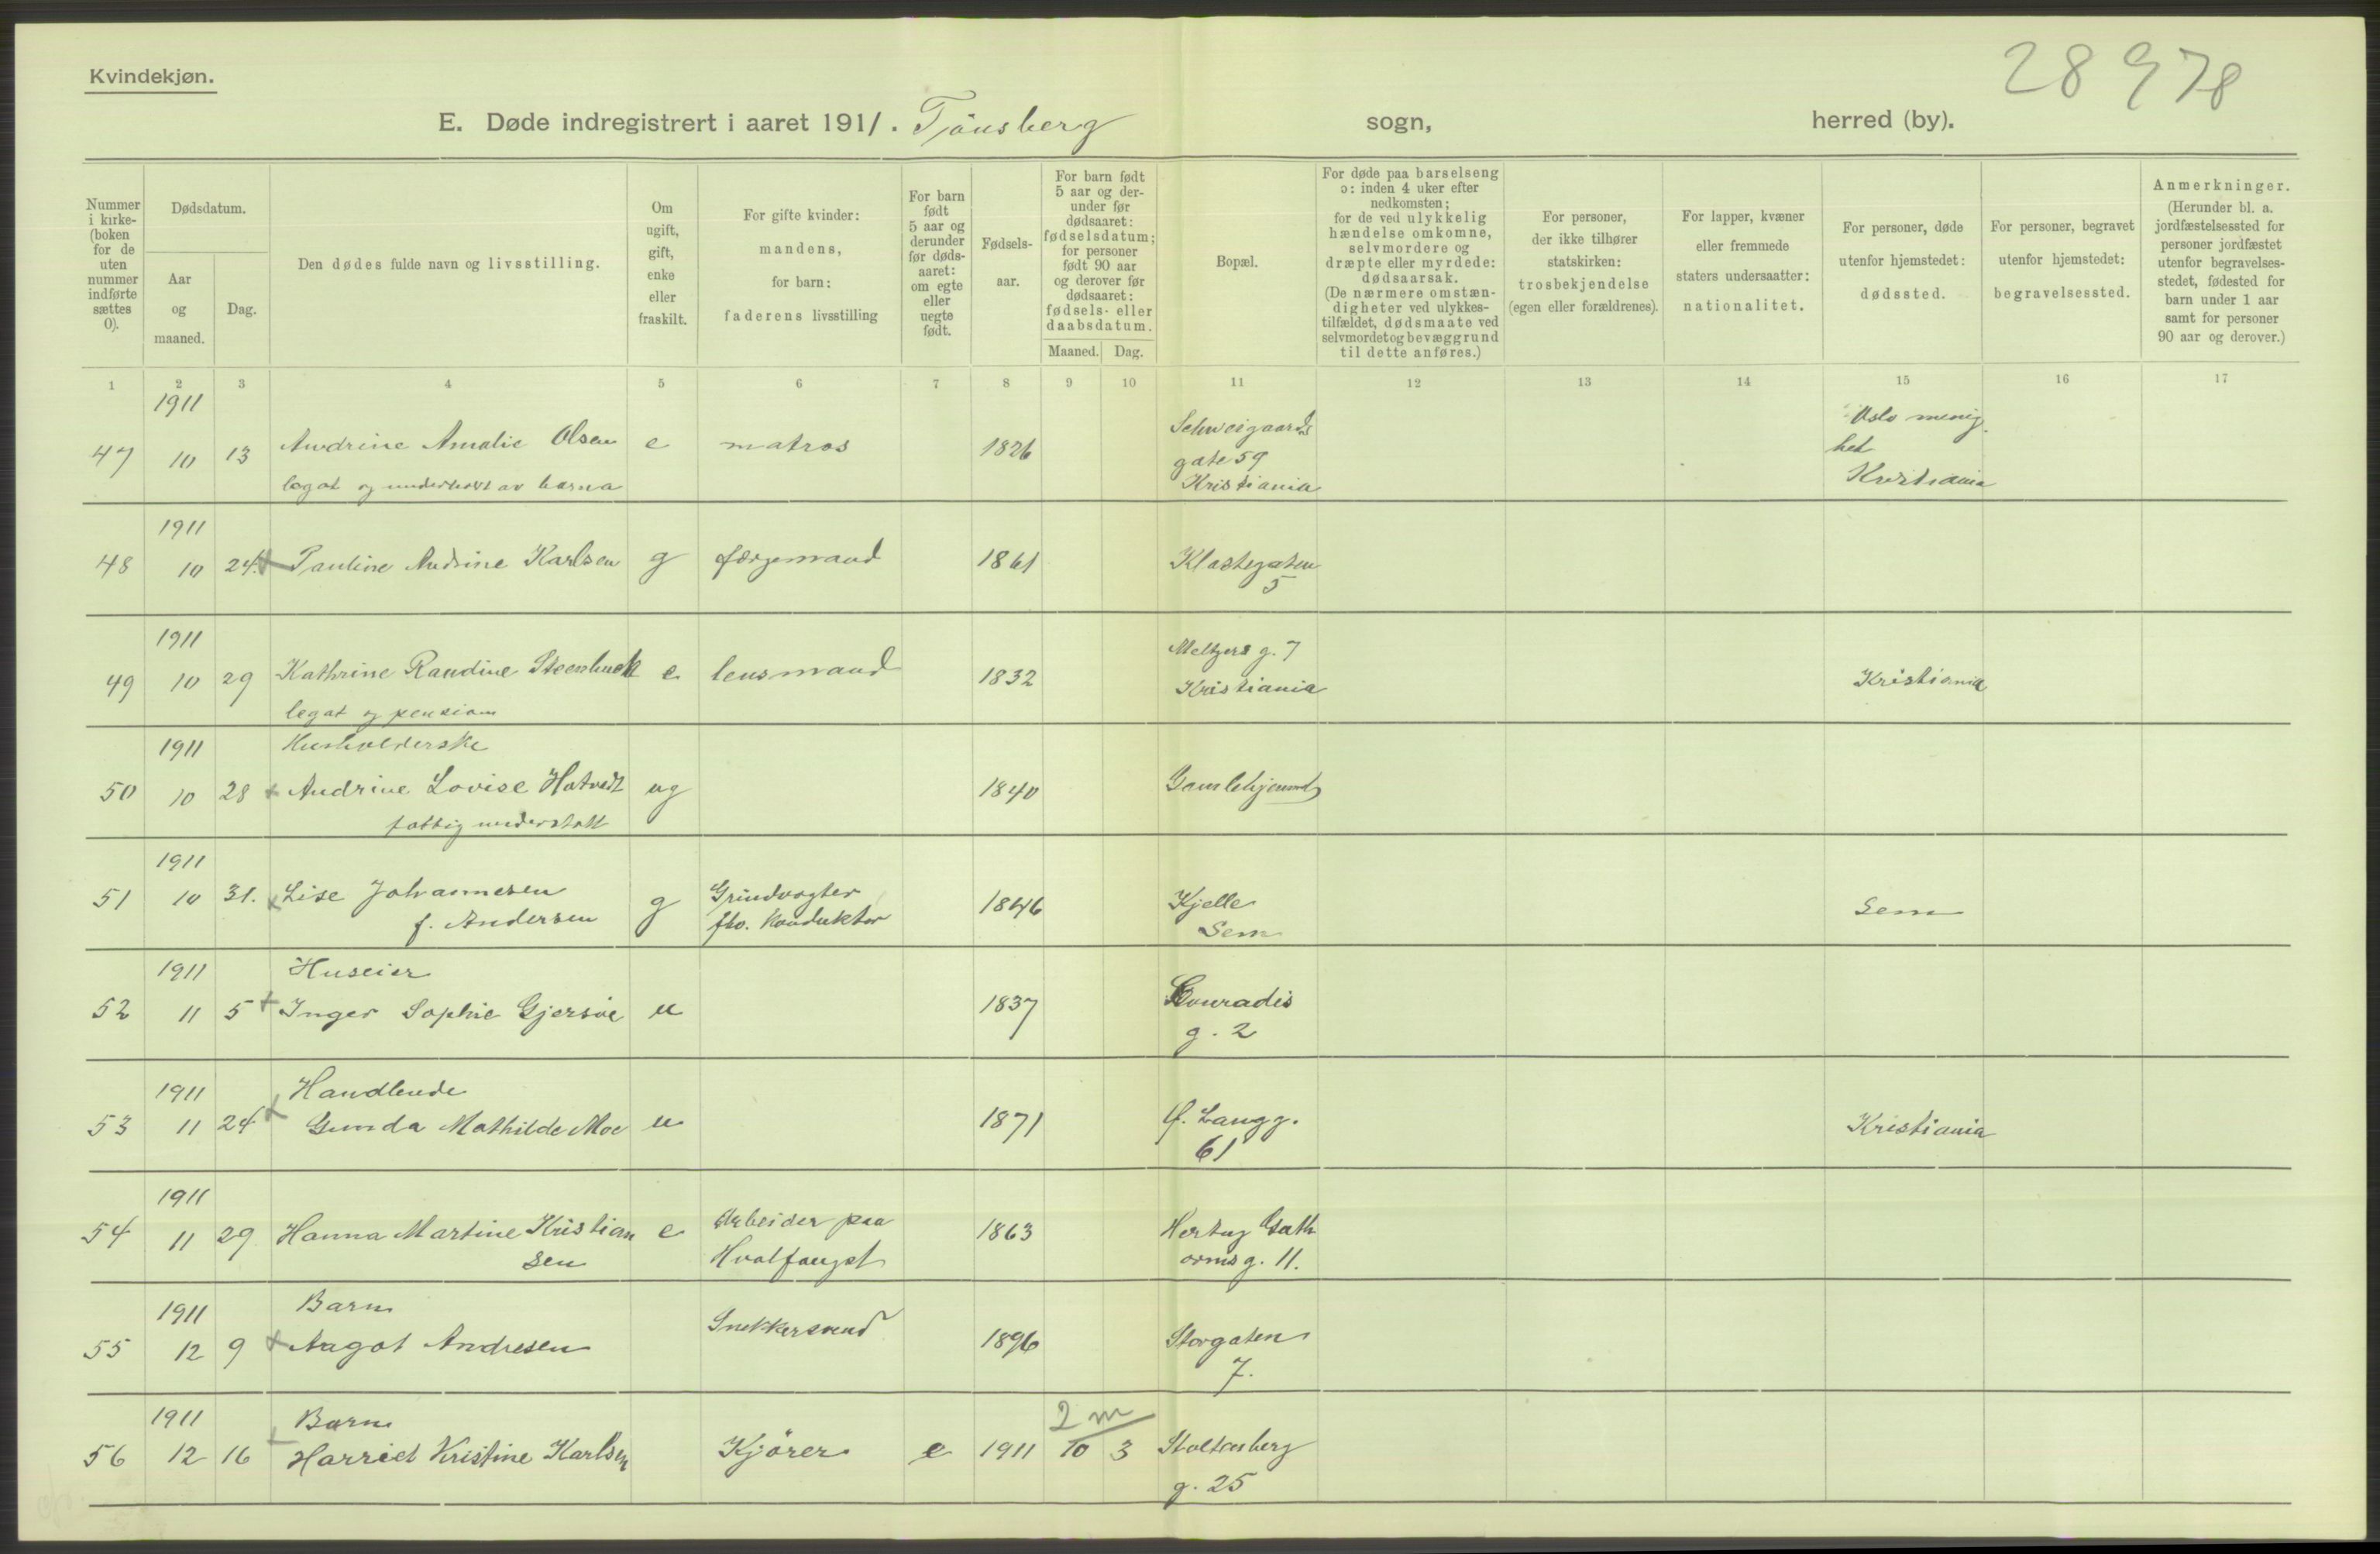 Kvindekjøn.
28 978
E. Døde indregistrert i aaret 1911. Tönsberg sogn, herred (by).
Nummer i kirke- (boken for de uten nummer indførte sættes 0).
Dødsdatum.
Aar og maaned.
Dag.
Den dødes fulde navn og livsstilling.
Om ugift, gift, enke eller fraskilt.
For gifte kvinder: mandens, for barn: faderens livsstilling
For barn født 5 aar og derunder før døds- aaret: om egte eller uegte født.
Fødsels- aar.
For barn født 5 aar og der- under før dødsaaret: fødselsdatum; for personer født 90 aar og derover før dødsaaret: fødsels- eller daabsdatum.
Maaned. Dag.
Bopæl.
For døde paa barselseng ɔ: inden 4 uker efter nedkomsten; for de ved ulykkelig hændelse omkomne, selvmordere og dræpte eller myrdede: dødsaarsak. (De nærmere omstæn- digheter ved ulykkes- tilfældet, dødsmaate ved selvmordet og bevæggrund til dette anføres.)
For personer, der ikke tilhører statskirken: trosbekjendelse (egen eller forældrenes).
For lapper, kvæner eller fremmede staters undersaatter: nationalitet.
For personer, døde utenfor hjemstedet: dødssted.
For personer, begravet utenfor hjemstedet: begravelsessted.
Anmerkninger. (Herunder bl. a. jordfæstelsessted for personer jordfæstet utenfor begravelses- stedet, fødested for barn under 1 aar samt for personer 90 aar og derover.)
1 2 3 4 5 6 7 8 9 10 11 12 13 14 15 16 17
1911
47 10 13 Andrine Amalie Olsen e matros 1826 Schweigaards gate 59 Kristiania Oslo menig- het Kristiania
legat og underhold av barna
1911
48 10 24. Pauline Andrine Karlsen g færgemand 1861 Klostegaten 5
1911
49 10 29 Kathrine Randine Steenbuck e lensmand 1832 Meltzers g. 7 Kristiania Kristiania
legat og pension
1911 Husholderske
50 10 28 Andrine Lovise Hotvedt ug 1840 Gamlehjemmet
fattig understøtt
1911
51 10 31. Lise Johannesen g Grindvogter 1846 Kjelle Sem
f. Andersen fhv. Konduktør Sem
1911 Huseier
52 11 5 Inger Sophie Gjersøe u 1837 Conradis g. 2
1911 Handlende
53 11 24 Gunda Mathilde Moe u 1871 Ø. Langg. 61 Kristiania
1911
54 11 29 Hanna Martine Kristian sen e Arbeider paa Hvalfangst 1863 Hertug Guth orms g. 11.
1911 Barn
55 12 9 Aagot Andresen Snekkersvend 1896 Storgaten 7.
1911 Barn 2 m
56 12 16 Harriet Kristine Karlsen Kjörer e 1911 10 3 Stoltenberg g. 25